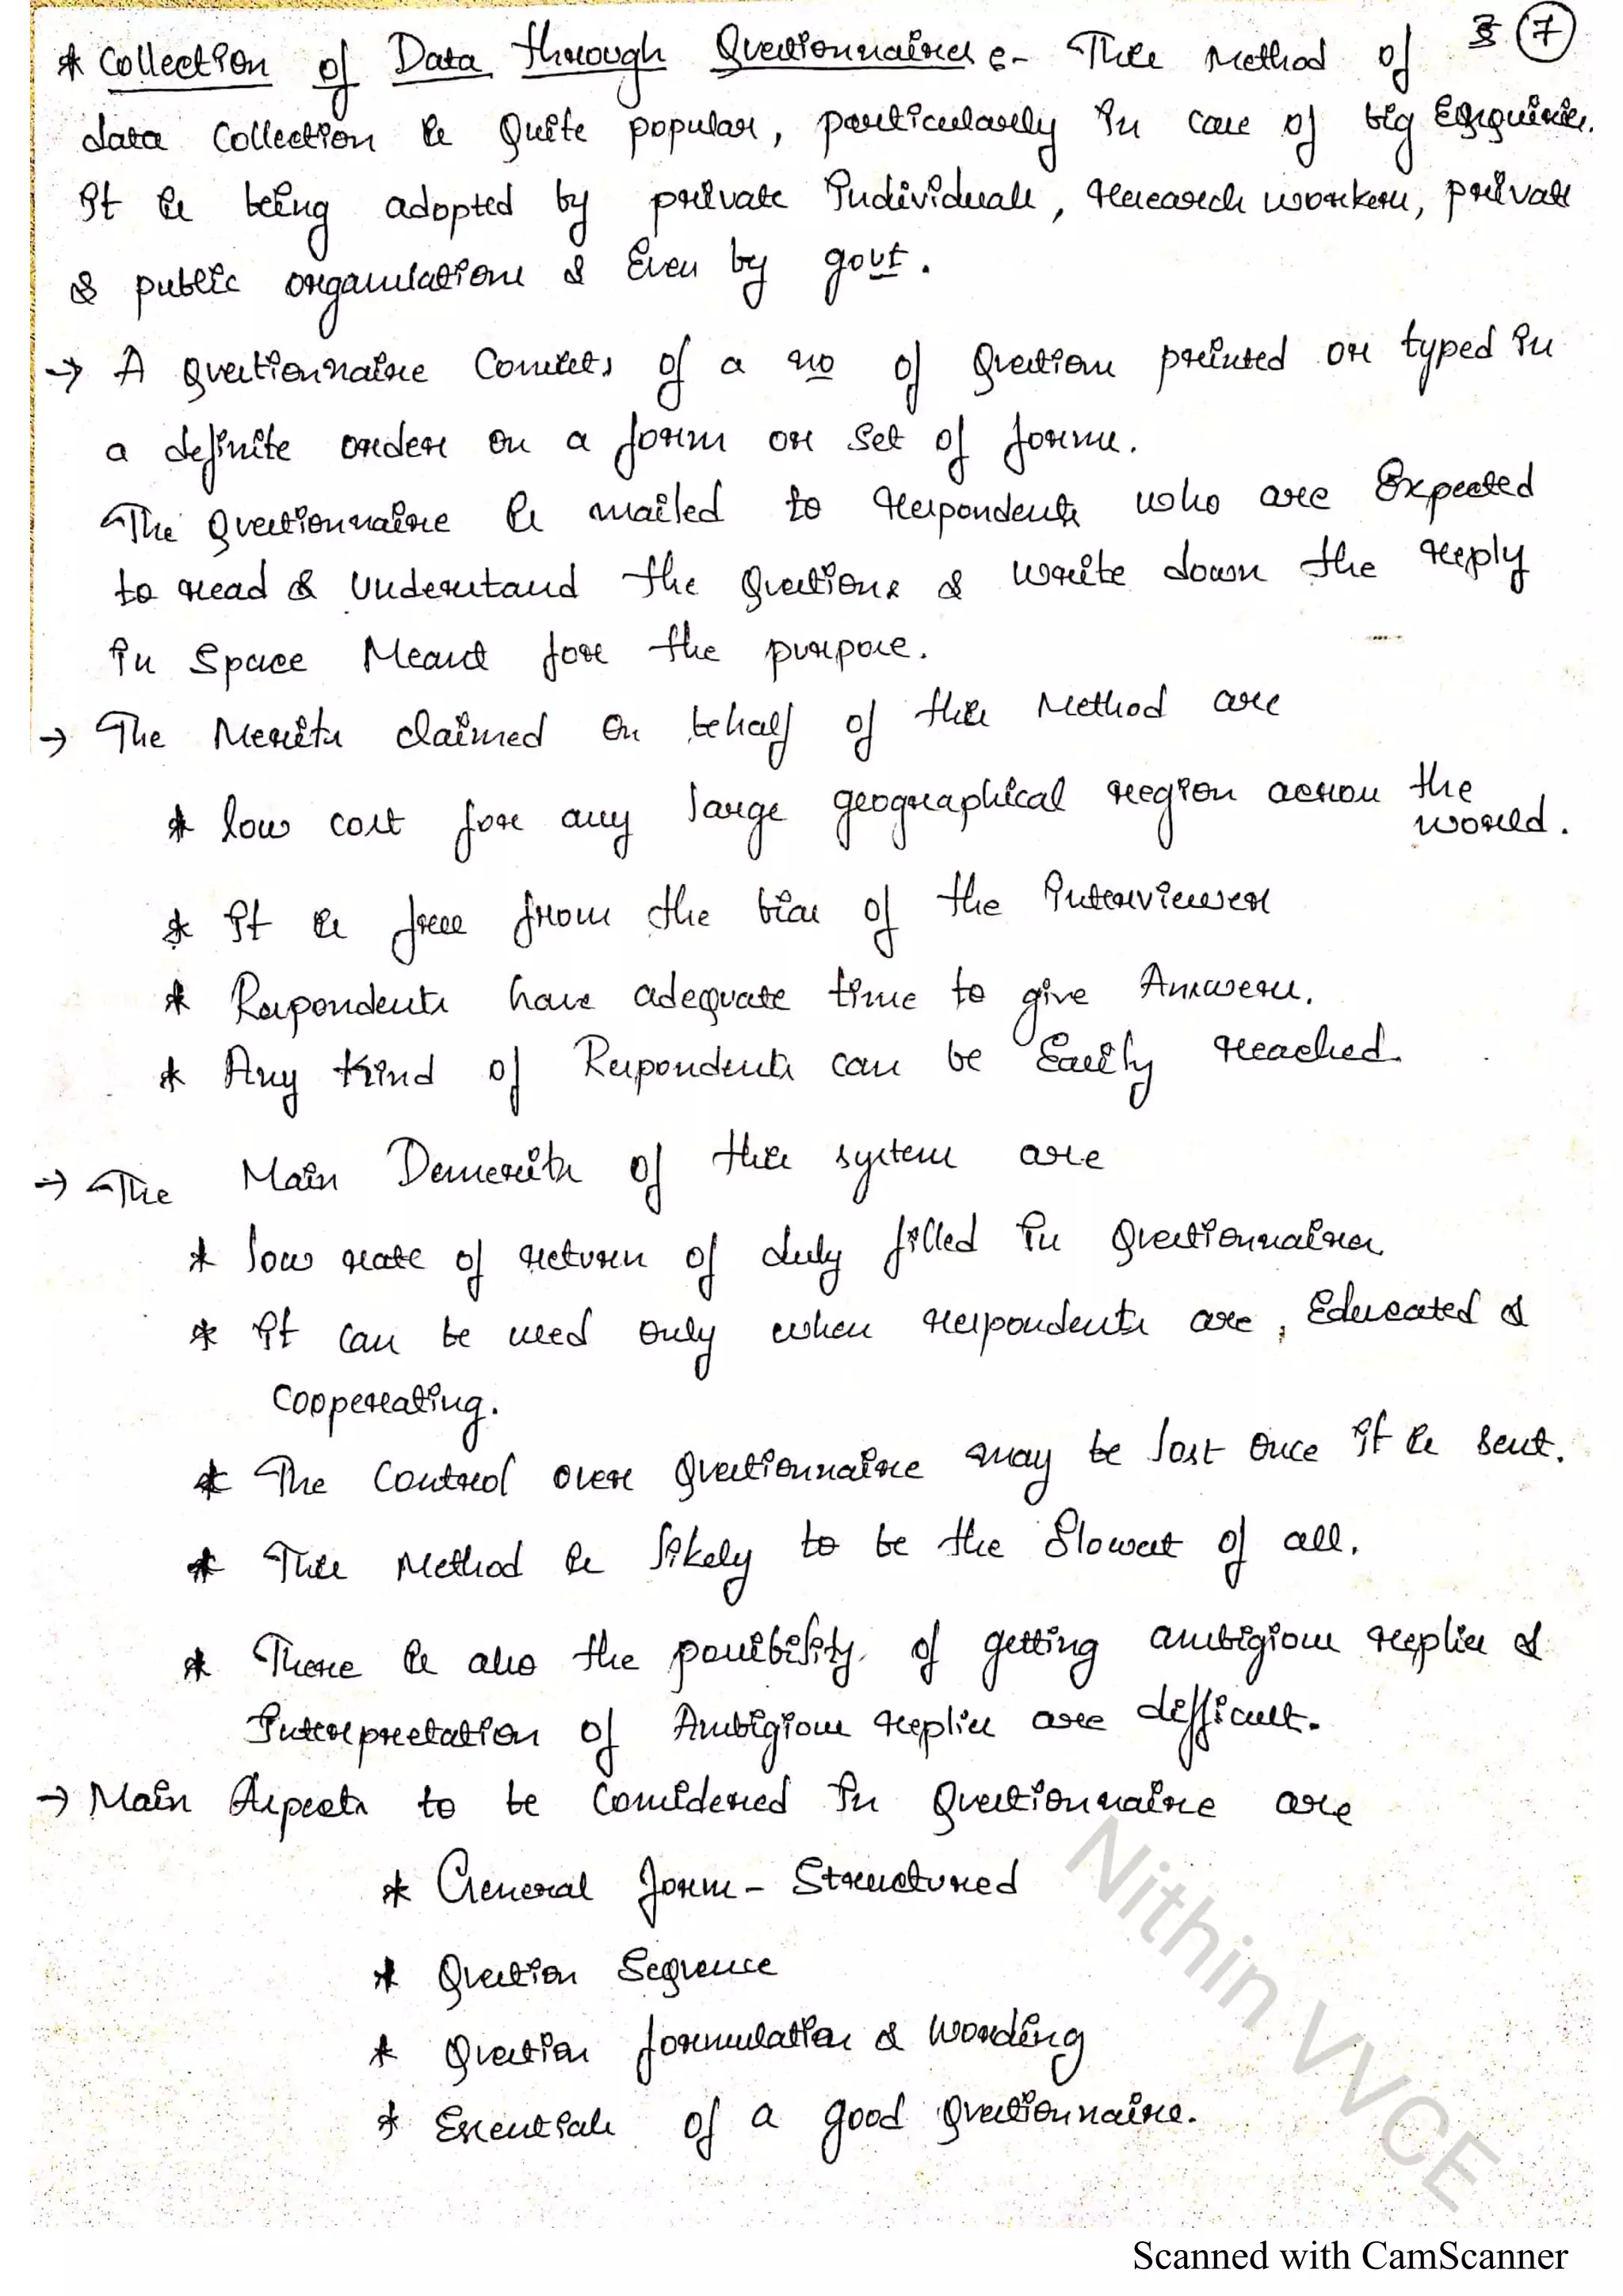 7
* Collection of Data through Questionnaires :- This Method of
data Collection is Quite popular, particularly in case of big Enquiries.
It is being adopted by private Individuals, research workers, private
& public organisations & Even by govt.
→ A Questionnaire Consists of a no of Questions printed or typed in
a definite order on a form or Set of forms.
The Questionnaire is mailed to respondents who are Expected
to read & Understand the Questions & write down the reply
in Space Meant for the purpose.
→ The Merits claimed on behalf of this Method are
* low cost for any large geographical region across the
world.
* It is free from the bias of the Interviewer
* Respondents have adequate time to give Answers.
* Any kind of Respondents can be Easily reached.
→ The Main Demerits of this system are
* low rate of return of duly filled in Questionnaires
* It can be used only when respondents are, Educated &
Cooperating.
* The Control over Questionnaire may be lost Once it is sent.
* This Method is likely to be the Slowest of all.
* There is also the possibility of getting ambigious replies &
Interpretation of Ambigious replies are difficult.
→ Main Aspects to be Considered in Questionnaire are
* General form - Structured
* Question Sequence
* Question formulation & Wording
* Essentials of a good Questionnaire.
Nithin VVCE
Scanned with CamScanner